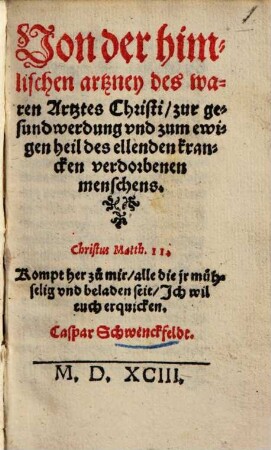 1
Von der him-
lischen artzney des wa-
ren Artztes Christi/ zur ge-
sundwerdung vnd zum ewi-
gen heil des ellenden kran-
cken verdorbenen
menschens.
Christus Matth. 11.
Kompt her zů mir/ alle die jr müh-
selig vnd beladen seit/ Ich wil
euch erquicken.
Caspar Schwenckfeldt.
M. D. XCIII.